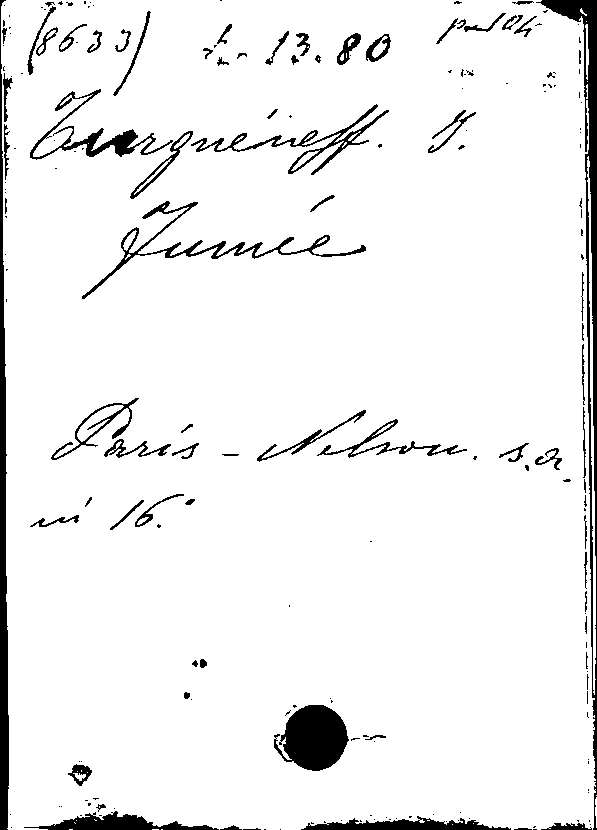 (8633) 13.80
Tourguéneff. J.
Fumée
Paris - Nelson. s.a.
in 16.°